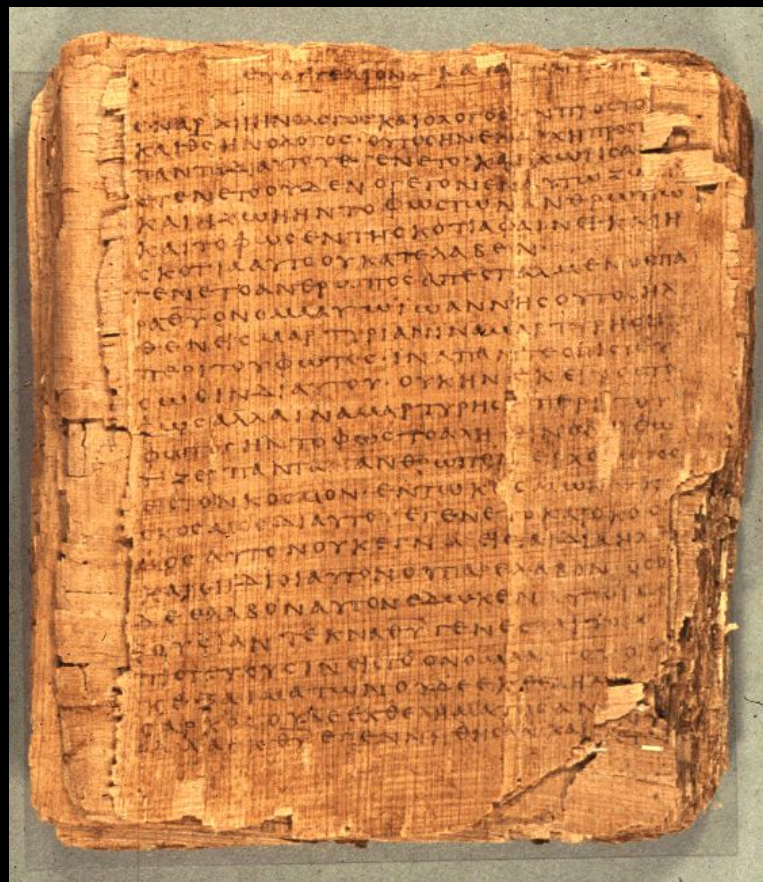 ΕΥΑΓΓΕΛΙΟΝ ΚΑΤΑ
ΕΝ ΑΡΧΗ ΗΝ Ο ΛΟΓΟϹ ΚΑΙ Ο ΛΟΓΟϹ ΗΝ ΠΡΟϹ ΤΟ
ΚΑΙ ΘϹ ΗΝ Ο ΛΟΓΟϹ· ΟΥΤΟϹ ΗΝ ΕΝ ΑΡΧΗ ΠΡΟϹ
ΠΑΝΤΑ ΔΙ ΑΥΤΟΥ ΕΓΕΝΕΤΟ· ΚΑΙ ΧΩΡΙϹ Α
ΕΓΕΝΕΤΟ ΟΥΔΕΝ Ο ΓΕΓΟΝΕΝ ΕΝ ΑΥΤΩ ΖΩ
ΚΑΙ Η ΖΩΗ ΗΝ ΤΟ ΦΩϹ ΤΩΝ ΑΝΘΡΩΠΩ
ΚΑΙ ΤΟ ΦΩϹ ΕΝ ΤΗ ϹΚΟΤΙΑ ΦΑΙΝΕΙ· ΚΑΙ Η
ϹΚΟΤΙΑ ΑΥΤΟ ΟΥ ΚΑΤΕΛΑΒΕΝ·
ΕΓΕΝΕΤΟ ΑΝΘΡΩΠΟϹ ΑΠΕϹΤΑΛΜΕΝΟϹ ΠΑ
ΡΑ ΘΥ ΟΝΟΜΑ ΑΥΤΩ ΙΩΑΝΝΗϹ ΟΥΤΟϹ ΗΛ
ΘΕΝ ΕΙϹ ΜΑΡΤΥΡΙΑΝ ΙΝΑ ΜΑΡΤΥΡΗϹΗ
ΠΕΡΙ ΤΟΥ ΦΩΤΟϹ· ΙΝΑ ΠΑΝΤΕϹ ΠΙϹΤΕΥ
ϹΩϹΙΝ ΔΙ ΑΥΤΟΥ· ΟΥΚ ΗΝ ΕΚΕΙΝΟϹ ΤΟ
ΦΩϹ ΑΛΛΑ ΙΝΑ ΜΑΡΤΥΡΗϹΗ ΠΕΡΙ ΤΟΥ
ΦΩΤΟϹ ΗΝ ΤΟ ΦΩϹ ΤΟ ΑΛΗΘΙΝΟΝ Ο ΦΩ
ΤΙΖΕΙ ΠΑΝΤΑ ΑΝΘΡΩΠΟΝ ΕΡΧΟΜΕΝΟΝ
ΕΙϹ ΤΟΝ ΚΟϹΜΟΝ· ΕΝ ΤΩ ΚΟϹΜΩ ΗΝ
ΚΟϹΜΟϹ ΔΙ ΑΥΤΟΥ ΕΓΕΝΕΤΟ ΚΑΙ Ο ΚΟϹ
ΜΟϹ ΑΥΤΟΝ ΟΥΚ ΕΓΝΩ ΕΙϹ ΤΑ ΙΔΙΑ ΗΛΘΕ
ΚΑΙ ΟΙ ΙΔΙΟΙ ΑΥΤΟΝ ΟΥ ΠΑΡΕΛΑΒΟΝ· ΟϹΟΙ
ΔΕ ΕΛΑΒΟΝ ΑΥΤΟΝ ΕΔΩΚΕΝ ΑΥΤΟΙϹ
ΞΟΥϹΙΑΝ ΤΕΚΝΑ ΘΥ ΓΕΝΕϹΘΑΙ
ΠΙϹΤΕΥΟΥϹΙΝ ΕΙϹ ΤΟ ΟΝΟΜΑ
ΚΕΞ ΑΙΜΑΤΩΝ ΟΥΔΕ ΕΚ ΘΕΛΗΜΑ
ϹΑΡΚΟϹ ΟΥΔΕ ΕΚ ΘΕΛΗΜΑΤΟϹ ΑΝ
ΑΛΛΑ ΕΚ ΘΥ ΕΓΕΝΝΗΘΗϹΑΝ